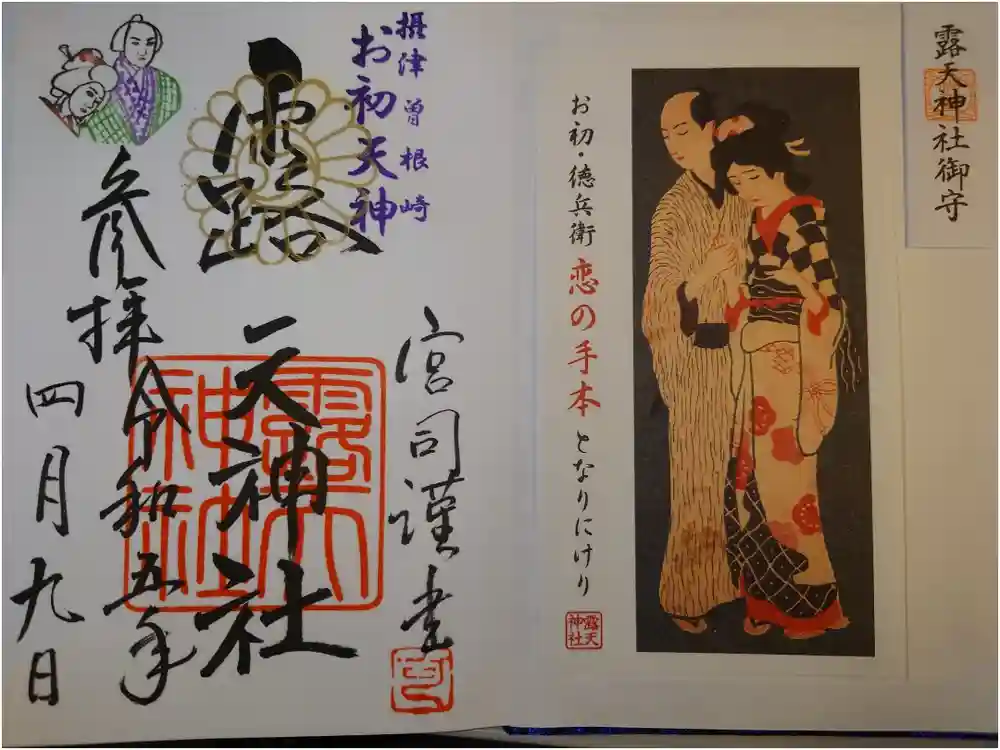 露天神社御守
お初・徳兵衛 恋の手本 となりにけり
露天
神社
摂津 曽根崎
お初天神
露
天神社
宮司謹書
参拝
令和五年
四月九日